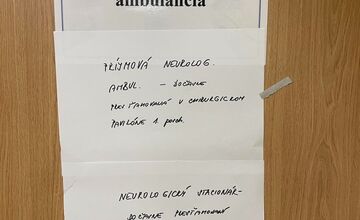 ambulancia
PRÍJMOVÁ NEUROLOG.
AMBUL. – DOČASNE
PRESŤAHOVANÁ V CHIRURGICKOM
PAVILÓNE 1. posch.
NEUROLOGICKÝ STACIONÁR–
DOČASNE PRESŤAHOVANÝ